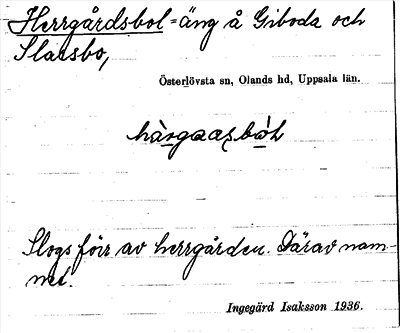 Herrgårdsbol = äng å Giboda och
Sladsbo,
Österlövsta sn, Olands hd, Uppsala län.
Slogs förr av herrgården. Därav nam-
net.
Ingegärd Isaksson 1936.